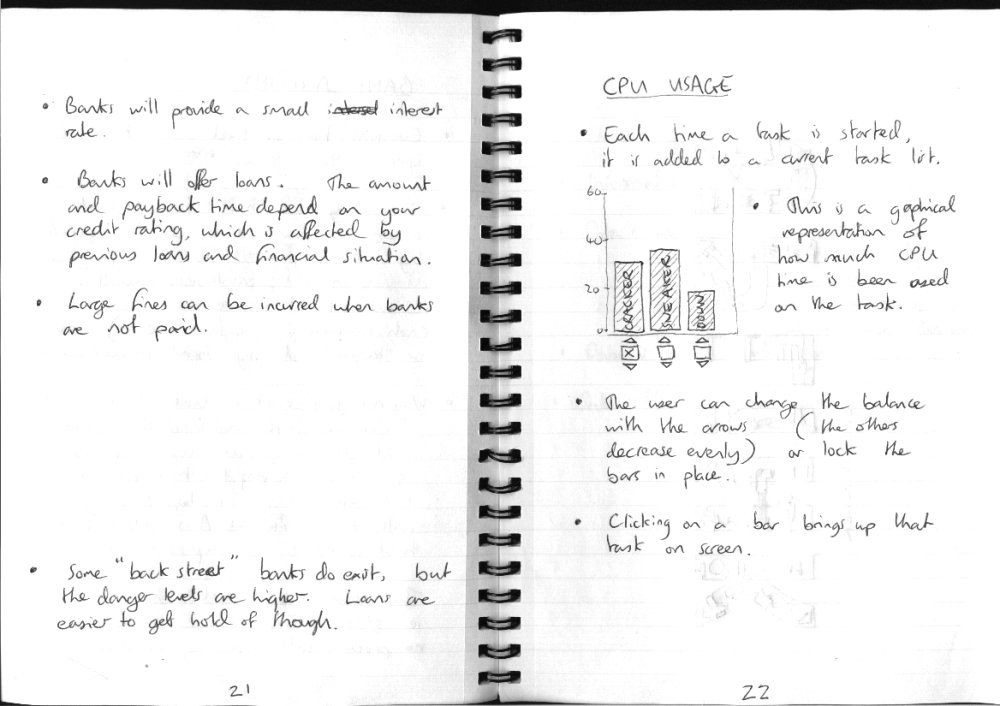 • Banks will provide a small interest interest
rate.
• Banks will offer loans. The amount
and payback time depend on your
credit rating, which is affected by
previous loans and financial situation.
• Large fines can be incurred when banks
are not paid.
• Some "back street" banks do exist, but
the danger levels are higher. Loans are
easier to get hold of though.
21
CPU USAGE
• Each time a task is started,
it is added to a current task list.
60
40
20
0
CRACKER
SNEAKER
DOWN
• This is a gaphical
representation of
how much CPU
time is been used
on the task.
• The user can change the balance
with the arrows (the others
decrease evenly) or lock the
bars in place.
• Clicking on a bar brings up that
task on screen.
22